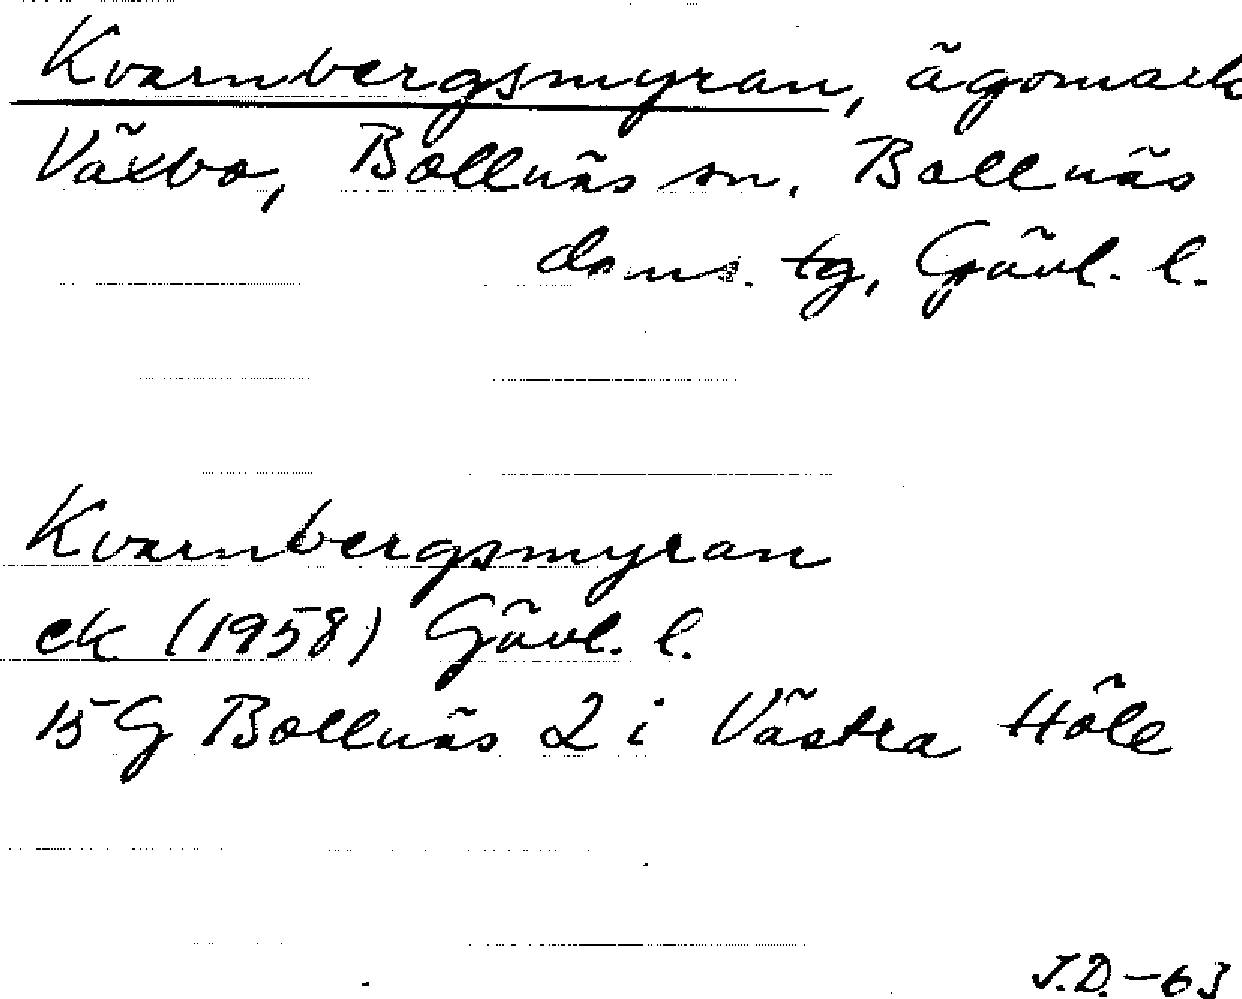 Kvarnbergsmyran, ägomark
Växbo, Bollnäs sn. Bollnäs
doms. tg, Gävl. l.
Kvarnbergsmyran
ek (1958) Gävl. l.
15 G Bollnäs 2 i Västra Höle
J.D. -63